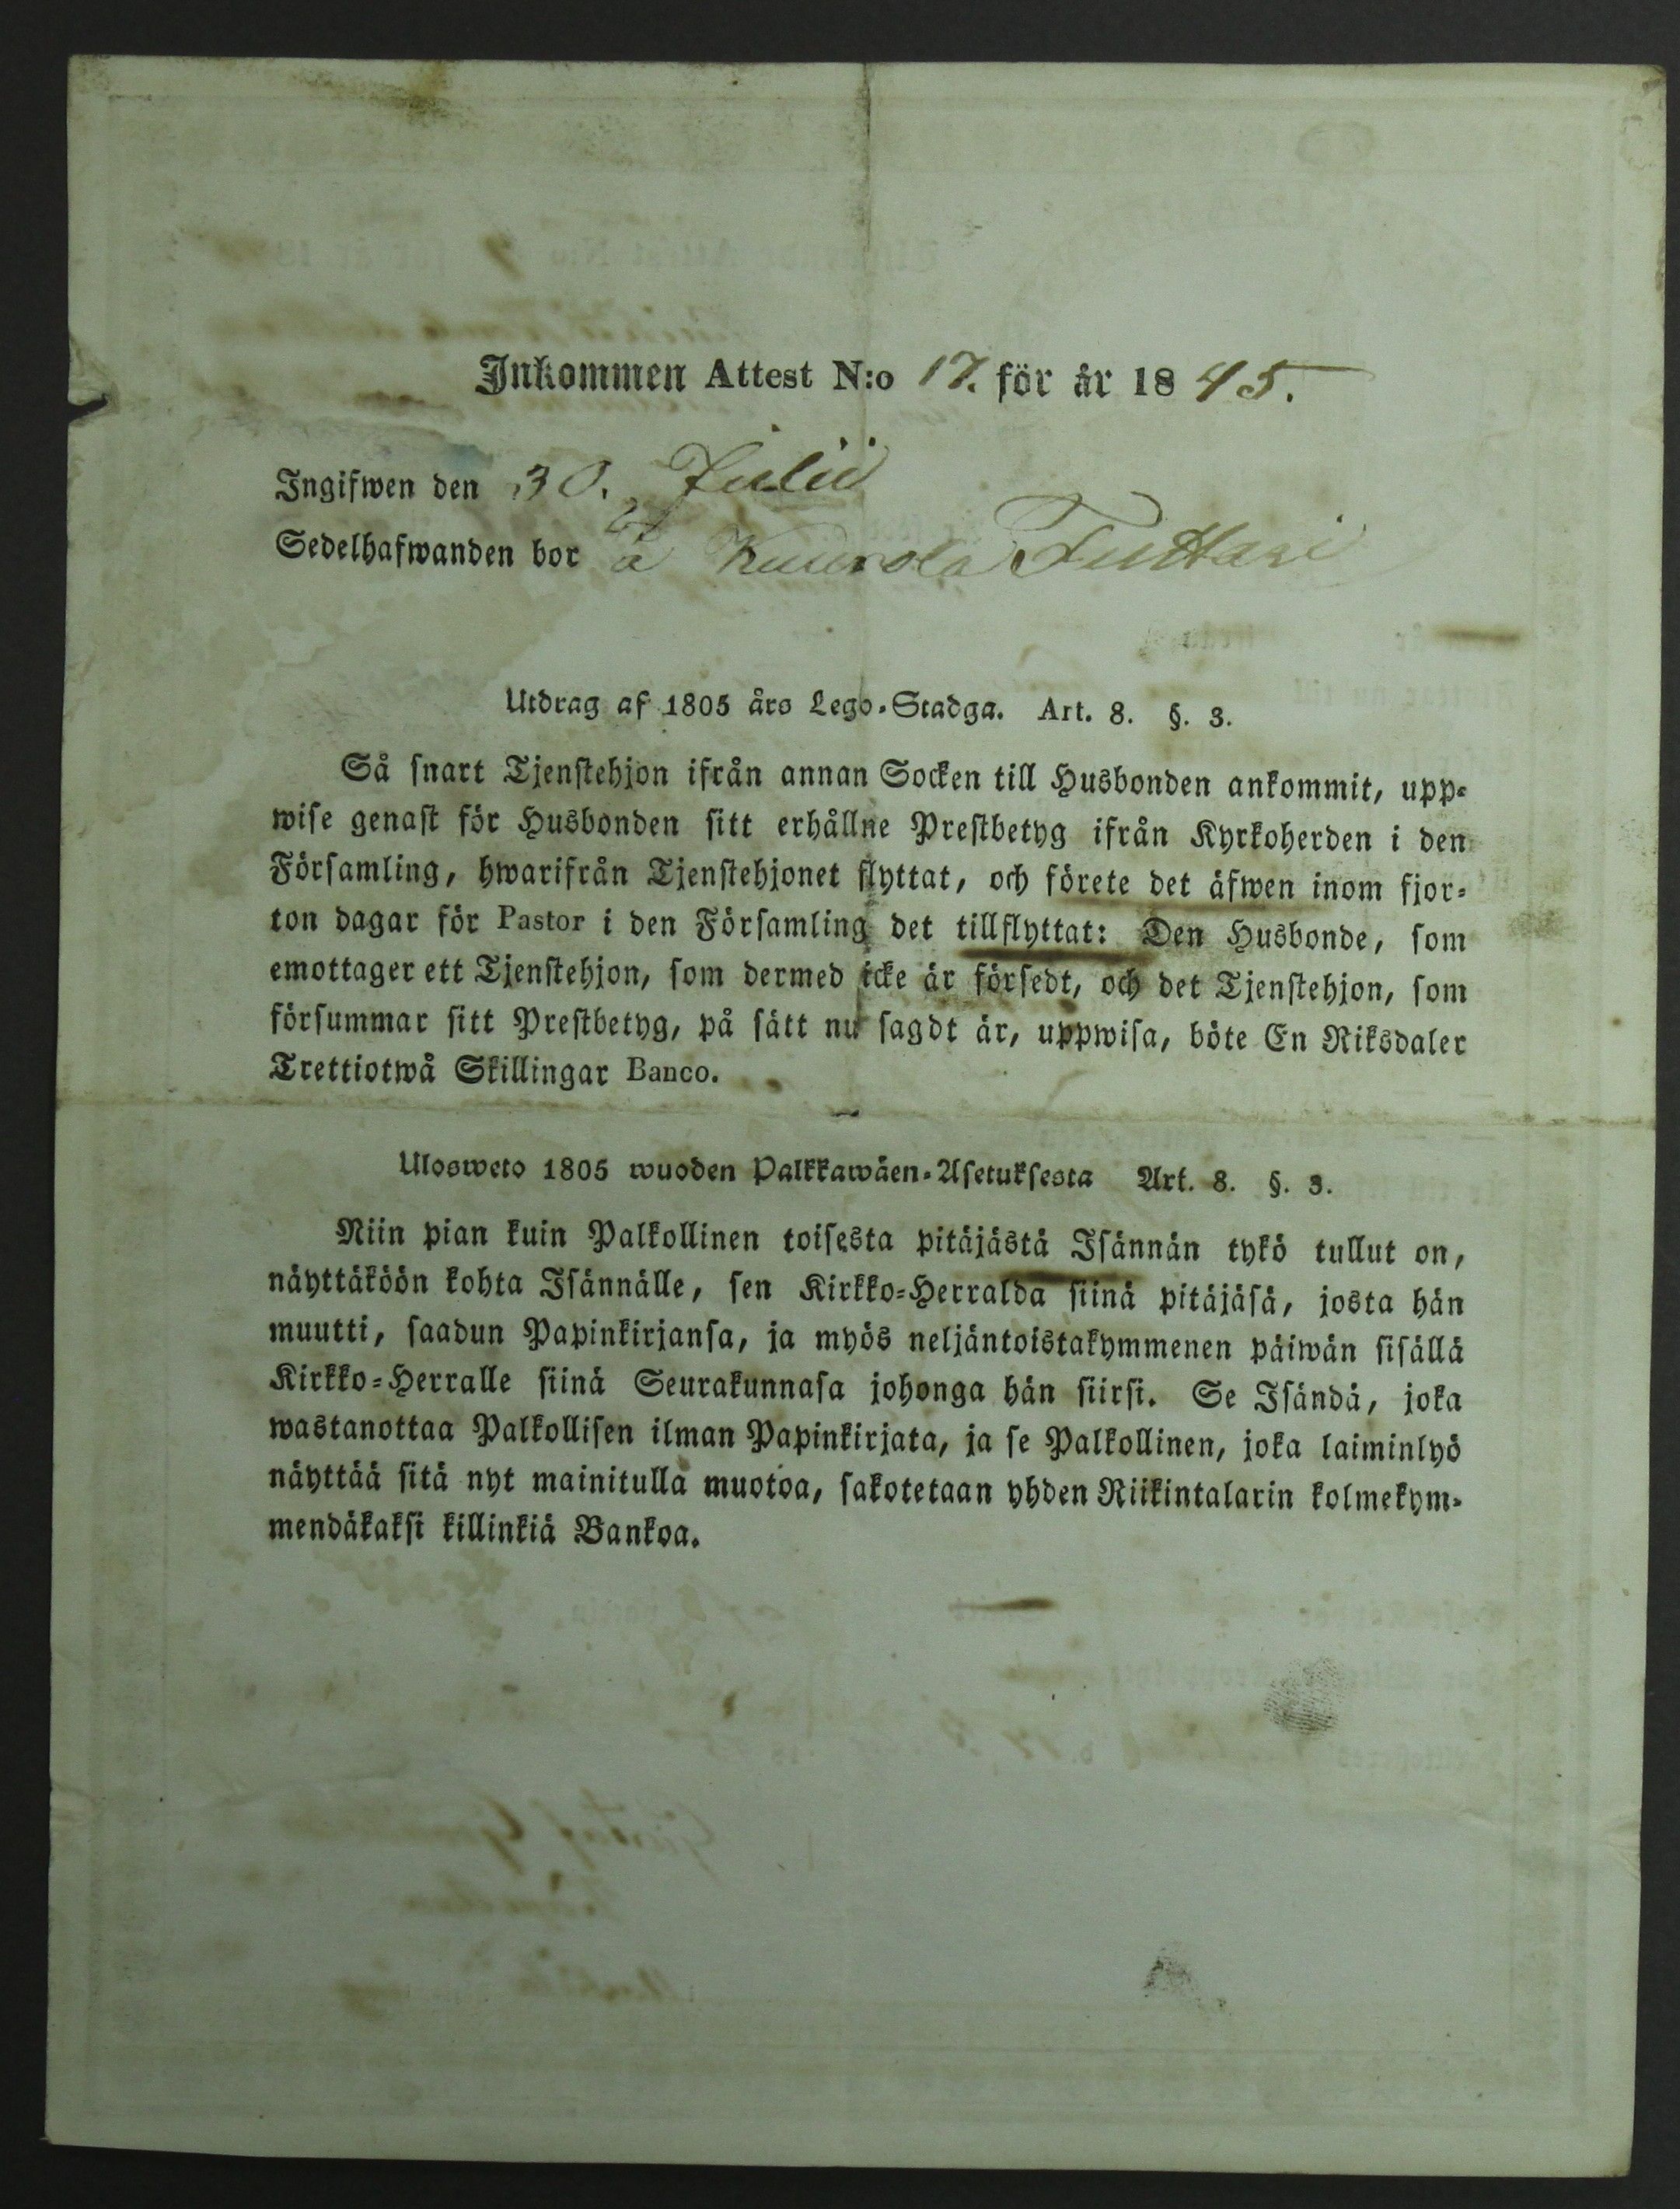 Inkommen Attest N:o 17. för år 1845.
Ingifwen den 30. Julii
Sedelhafwanden bor å
Utdrag af 1805 års Lego-Stadga. Art. 8. §. 3.
Så snart Tjenstehjon ifrån annan Socken till Husbonden ankommit, upp-
wise genast för Husbonden sitt erhållne Prestbetyg ifrån Kyrkoherden i den
Församling, hwarifrån Tjenstehjonet flyttat, och förete det äfwen inom fjor-
ton dagar för Pastor i den Församling det tillflyttat: Den Husbonde, som
emottager ett Tjenstehjon, som dermed icke är försedt, och det Tjenstehjon, som
försummar sitt Prestbetyg, på sätt nu sagdt är, uppwisa, böte En Riksdaler
Trettiotwå Skillingar Banco.
Ulosweto 1805 wuoden Palkkawäen-Asetuksesta Art. 8. §. 3.
Niin pian kuin Palkollinen toisesta pitäjästä Isännän tykö tullut on,
näyttäköön kohta Isännälle, sen Kirkko-Herralda siinä pitäjäsä, josta hän
muutti, saadun Papinkirjansa, ja myös neljäntoistakymmenen päiwän sisällä
Kirkko-Herralle siinä Seurakunnasa johonga hän siirsi. Se Isändä, joka
wastanottaa Palkollisen ilman Papinkirjata, ja se Palkollinen, joka laiminlyö
näyttää sitä nyt mainitulla muotoa, sakotetaan yhden Riikintalarin kolmekym-
mendäkaksi killinkiä Bankoa.